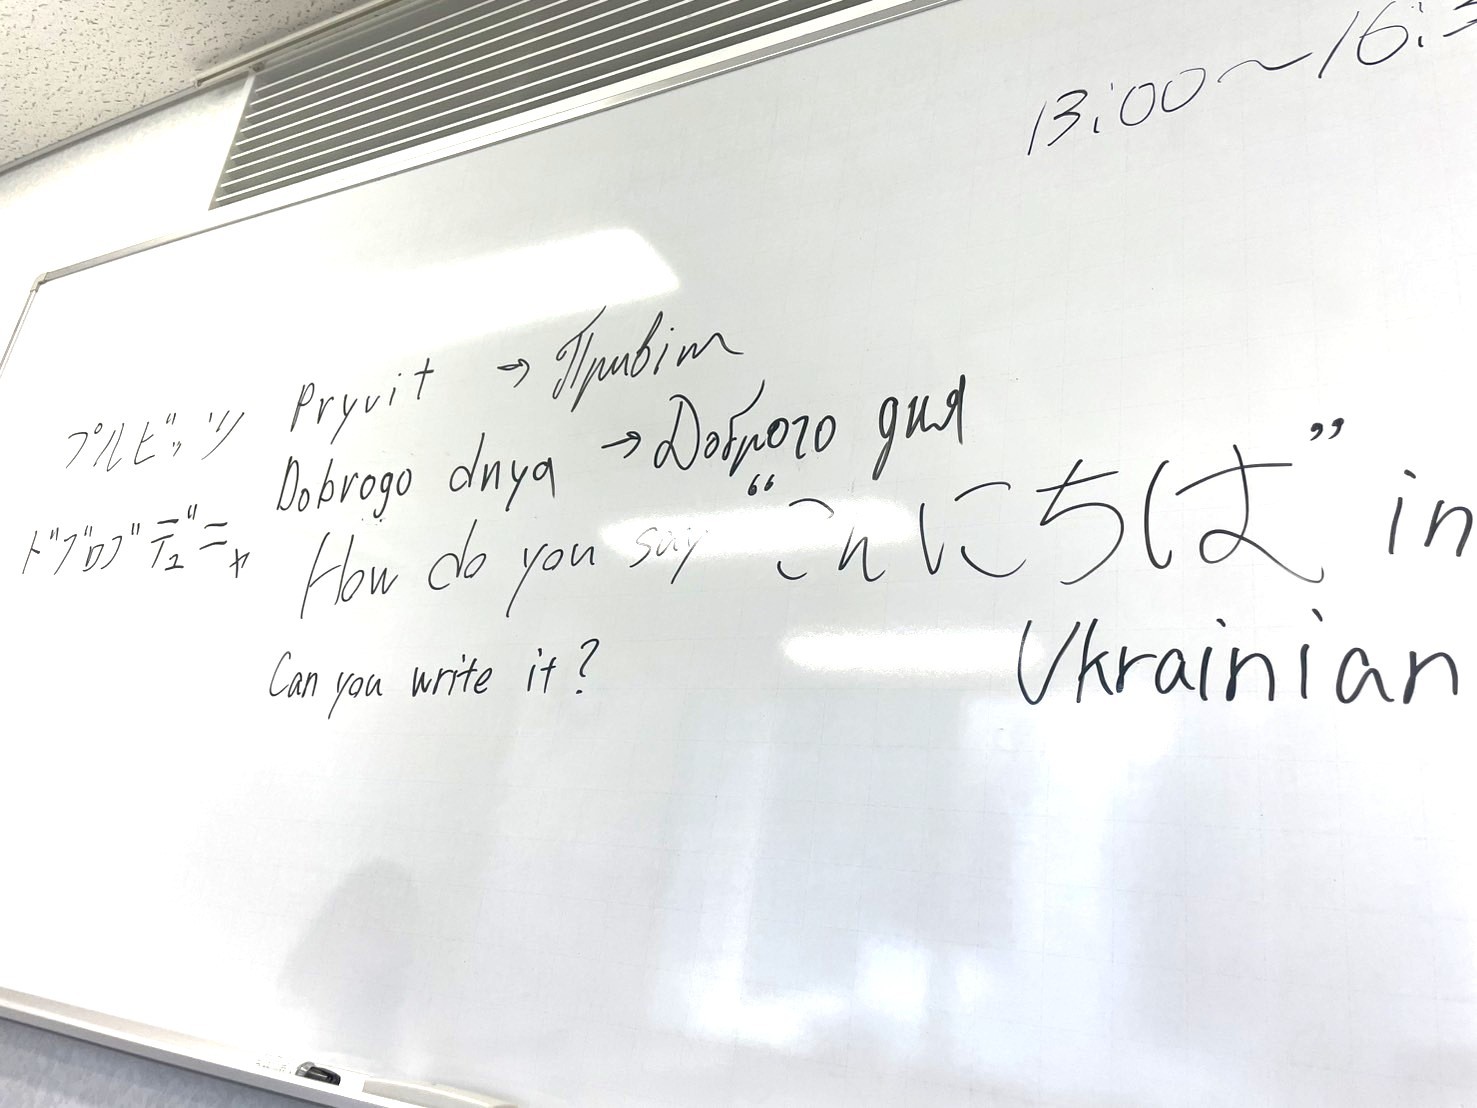 13:00～16:3
プルビッツ Pryvit → Привіт
ドブロブデュニャ Dobrogo dnya → Доброго дня
How do you say “こんにちは” in
Ukrainian
Can you write it?